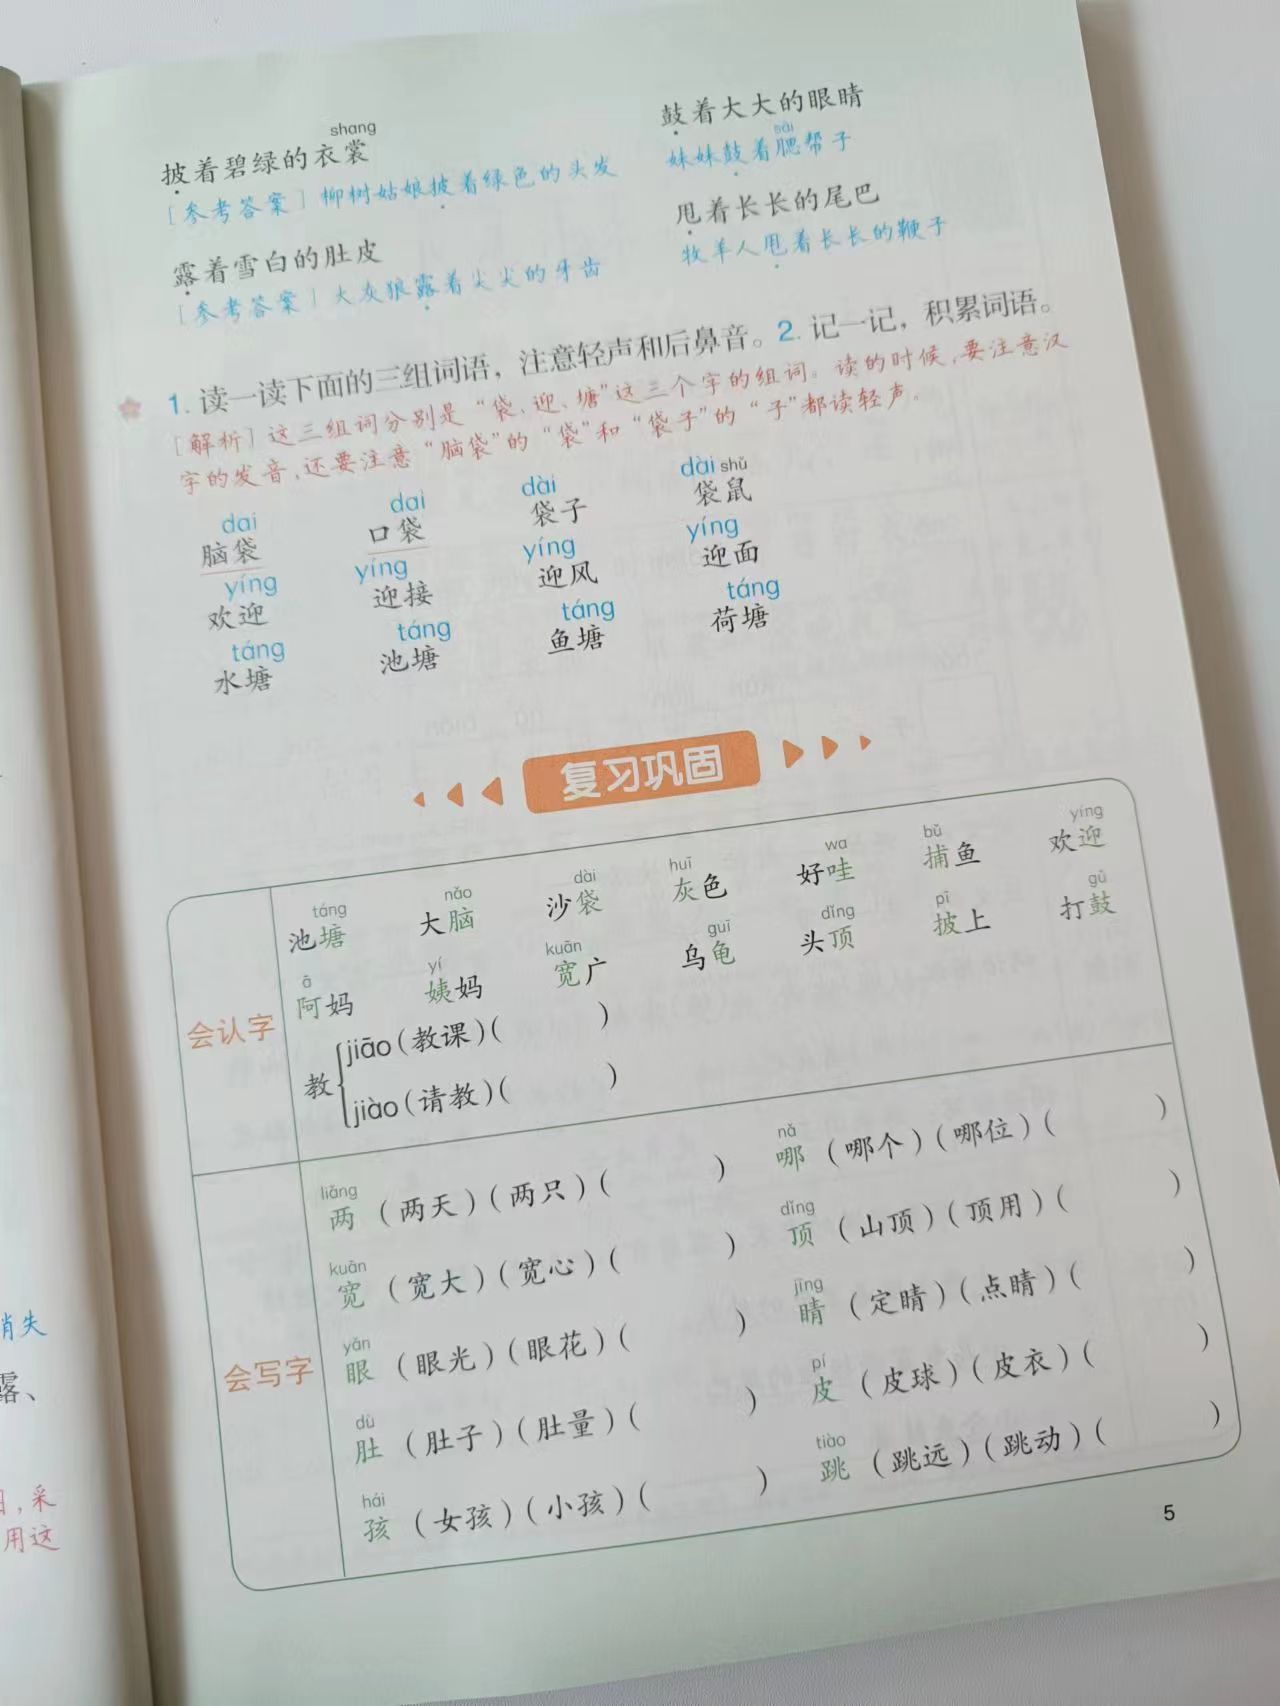 shang
披着碧绿的衣裳
[参考答案]柳树姑娘披着绿色的头发
鼓着大大的眼睛
sāi
妹妹鼓着腮帮子
露着雪白的肚皮
[参考答案]大灰狼露着尖尖的牙齿
甩着长长的尾巴
牧羊人甩着长长的鞭子
1. 读一读下面的三组词语，注意轻声和后鼻音。2. 记一记，积累词语。
[解析]这三组词分别是“袋、迎、塘”这三个字的组词。读的时候,要注意汉
字的发音,还要注意“脑袋”的“袋”和“袋子”的“子”都读轻声。
dai dai dài dài shǔ
脑袋 口袋 袋子 袋鼠
yíng yíng yíng yíng
欢迎 迎接 迎风 迎面
táng táng táng táng
水塘 池塘 鱼塘 荷塘
复习巩固
会认字
táng nǎo dài huī wa bǔ yíng
池塘 大脑 沙袋 灰色 好哇 捕鱼 欢迎
ā yí kuān guī dǐng pī gǔ
阿妈 姨妈 宽广 乌龟 头顶 披上 打鼓
教
jiāo(教课)( )
jiào(请教)( )
会写字
liǎng nǎ
两(两天)(两只)( ) 哪(哪个)(哪位)( )
kuān dǐng
宽(宽大)(宽心)( ) 顶(山顶)(顶用)( )
yǎn jīng
眼(眼光)(眼花)( ) 睛(定睛)(点睛)( )
dù pí
肚(肚子)(肚量)( ) 皮(皮球)(皮衣)( )
hái tiào
孩(女孩)(小孩)( ) 跳(跳远)(跳动)( )
5
消失
露、
,采
用这